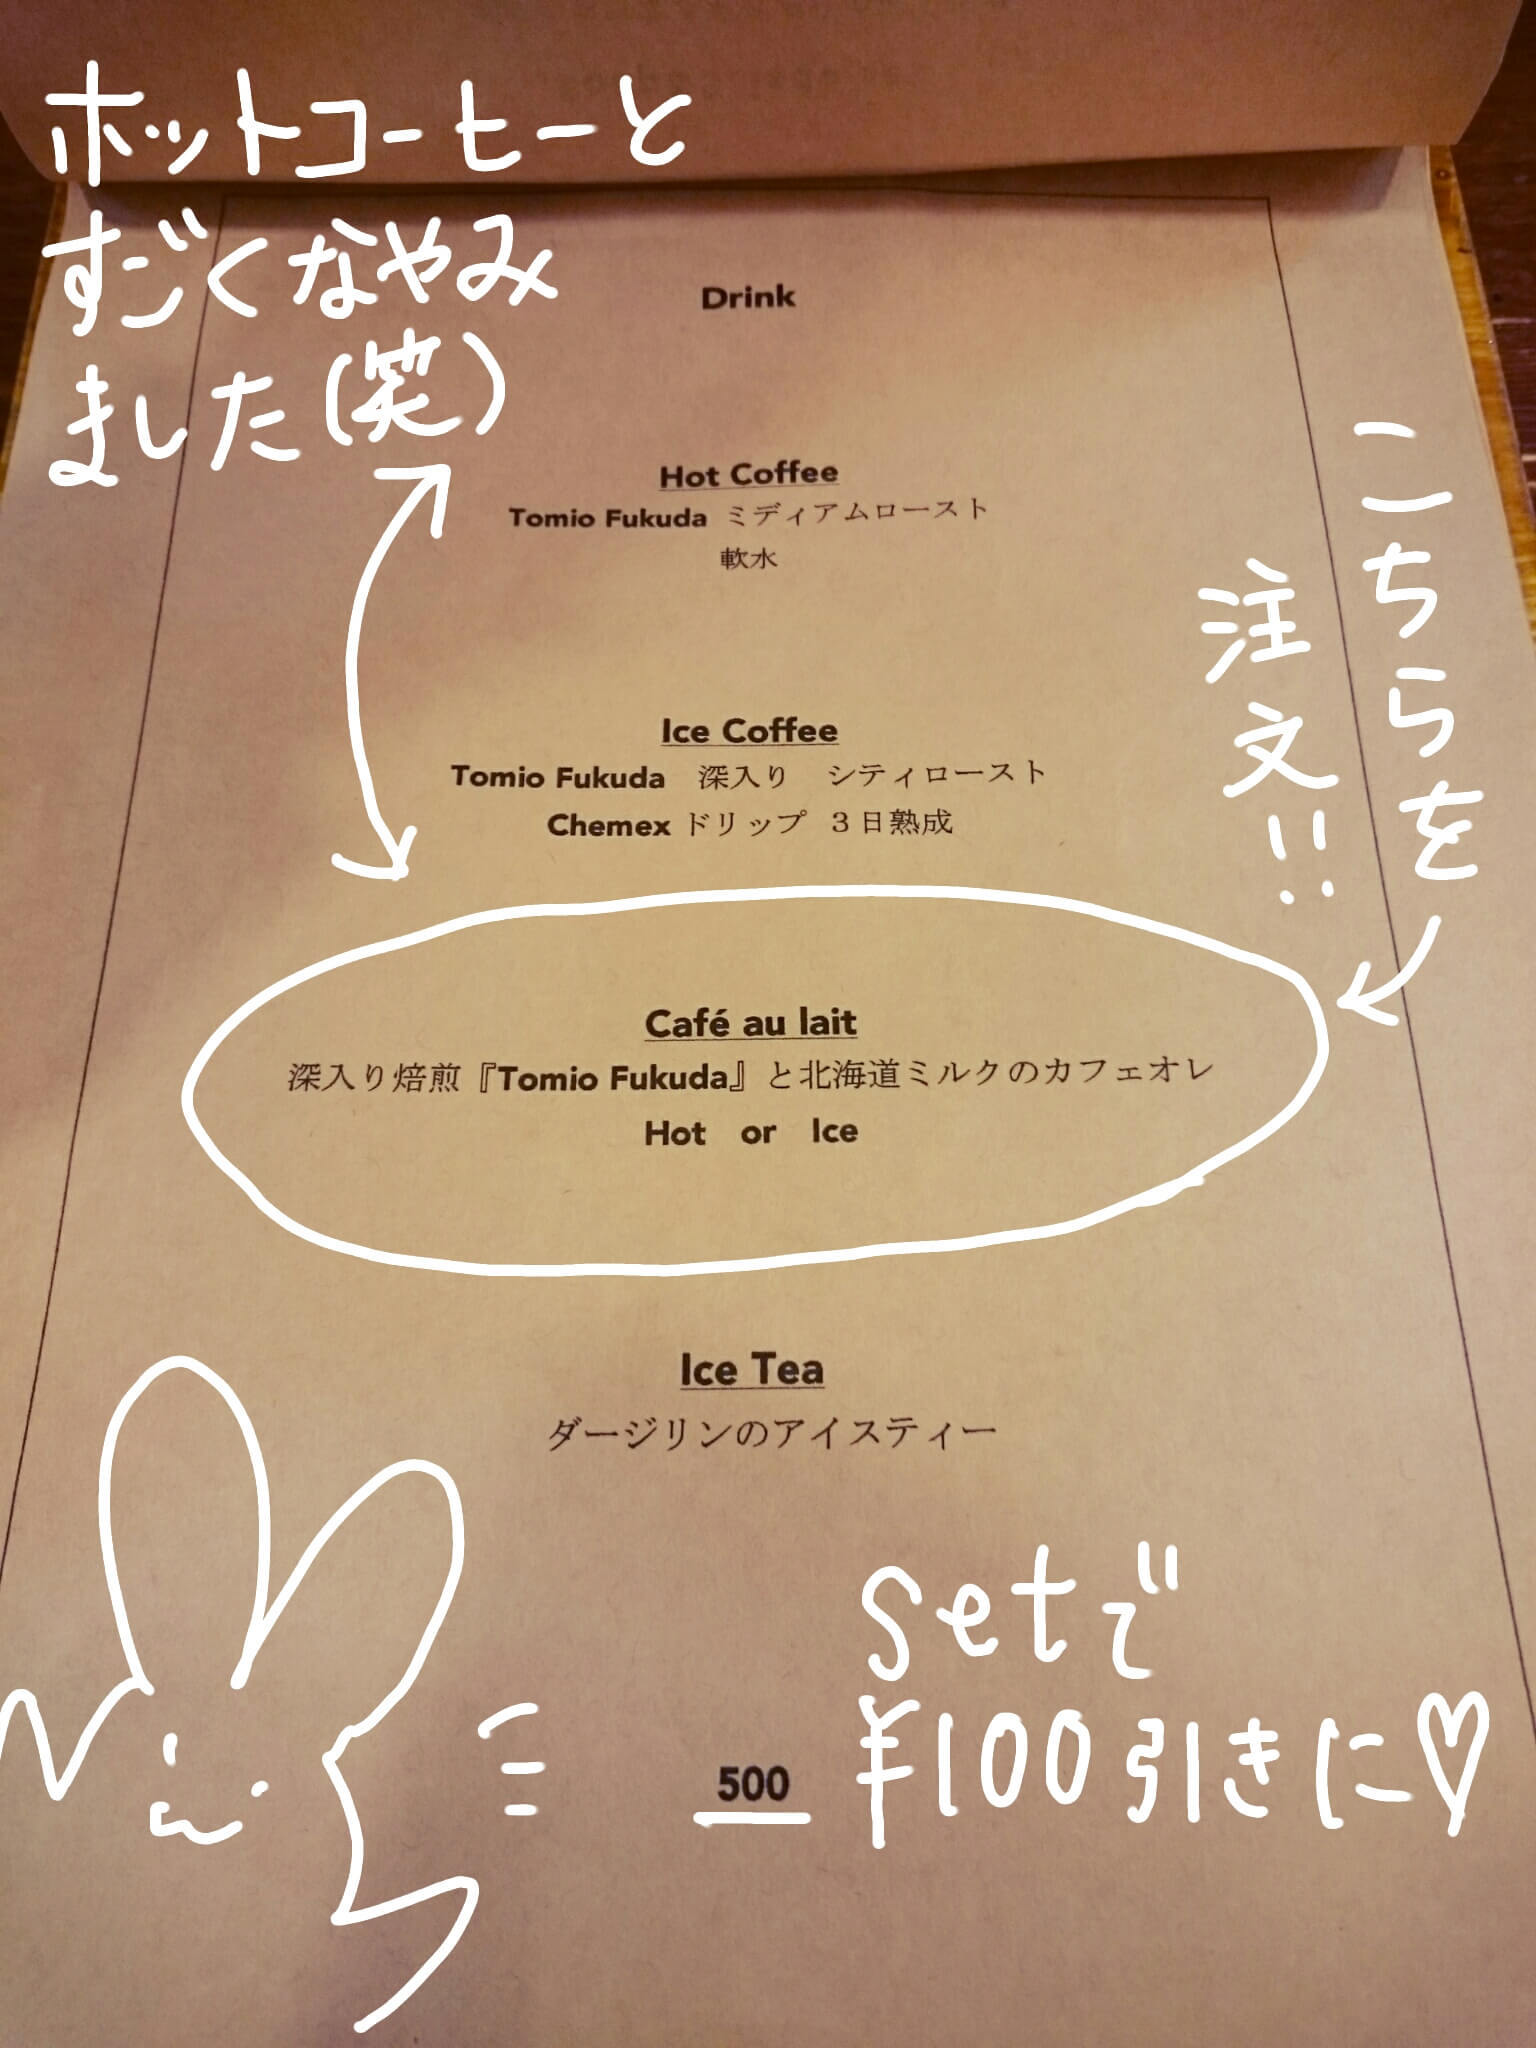 ホットコーヒーと
すごくなやみ
ました(笑)
Drink
Hot Coffee
Tomio Fukuda ミディアムロースト
軟水
Ice Coffee
Tomio Fukuda 深入り シティロースト
Chemex ドリップ 3日熟成
こちらを
注文!!
Café au lait
深入り焙煎『Tomio Fukuda』と北海道ミルクのカフェオレ
Hot or Ice
Ice Tea
ダージリンのアイスティー
setで
500
¥100引きに♡